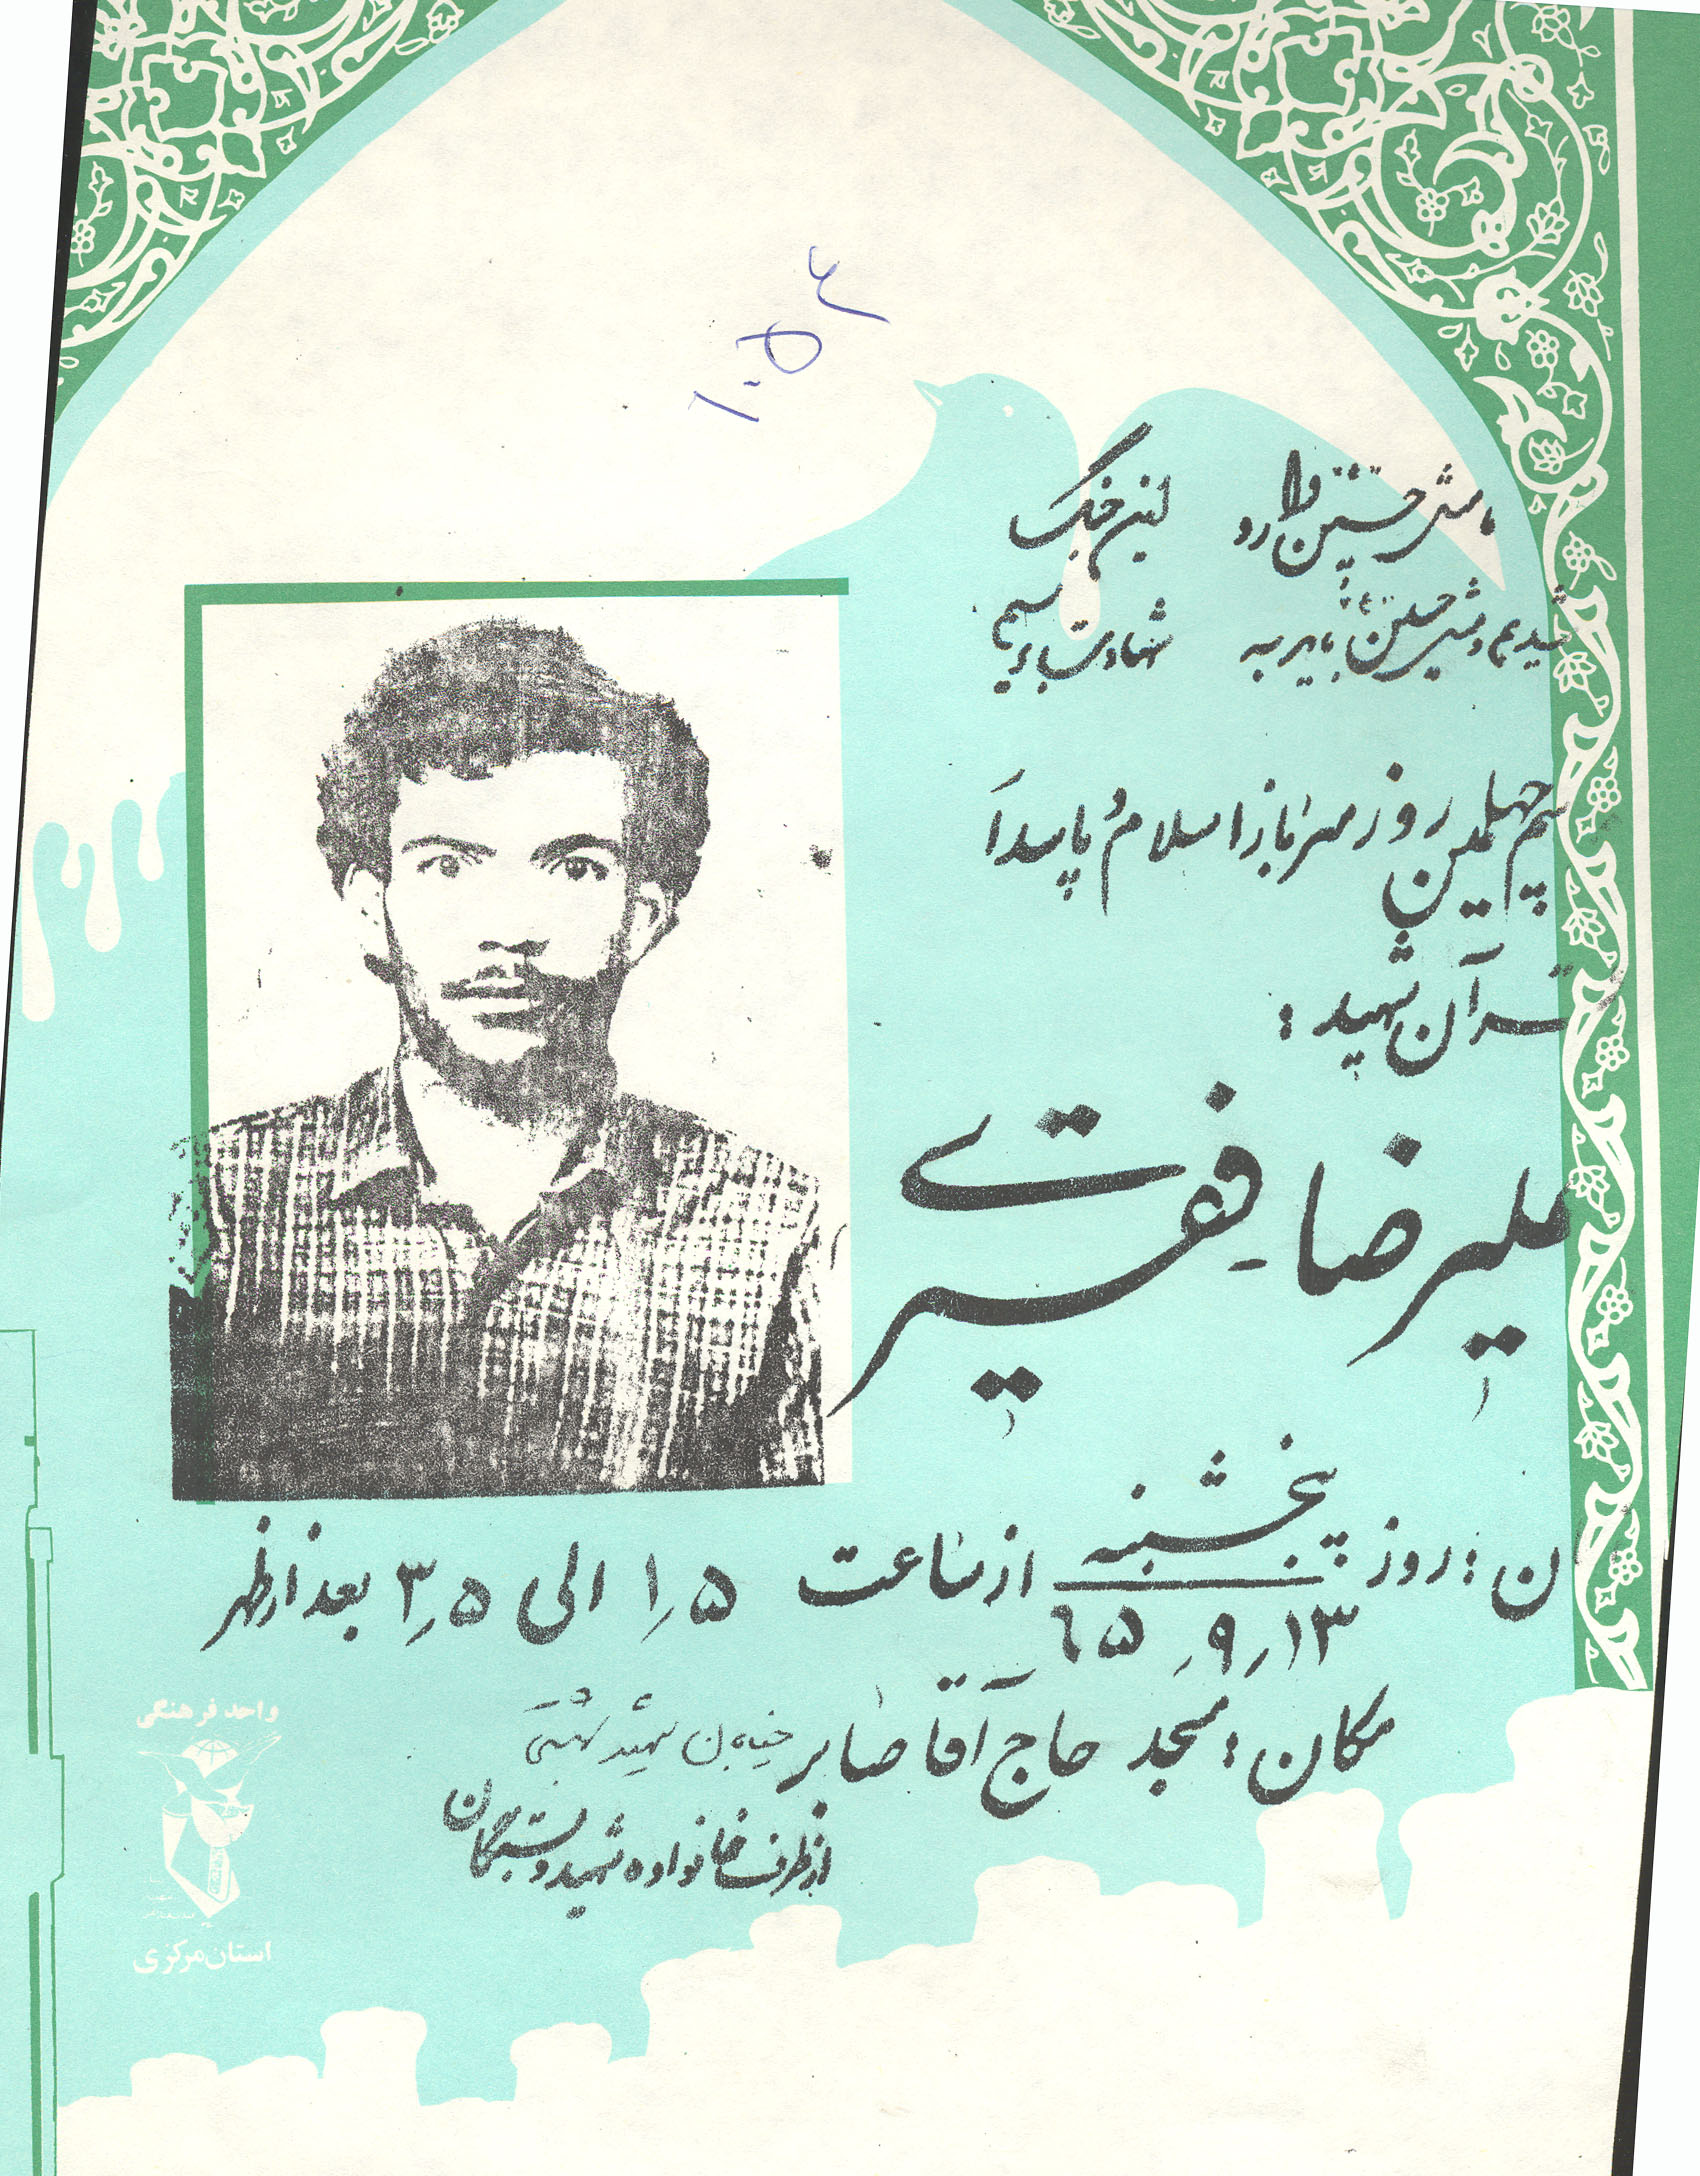 ۱۰۵۶
عشق حسین وارد این جنگ
شدیم و عشق حسین باید به شهادت برسیم
چهلمین روز سرباز اسلام و پاسدا
قرآن شهید :
علیرضا فقیری
ن : روز پنجشنبه از ساعت ۱٫۵ الی ۳٫۵ بعد از ظهر
۶۵٫۹٫۱۳
مکان : مسجد حاج آقا صابر خیابان شهید بهشتی
از طرف خانواده شهید و بستگان
واحد فرهنگی
استان مرکزی